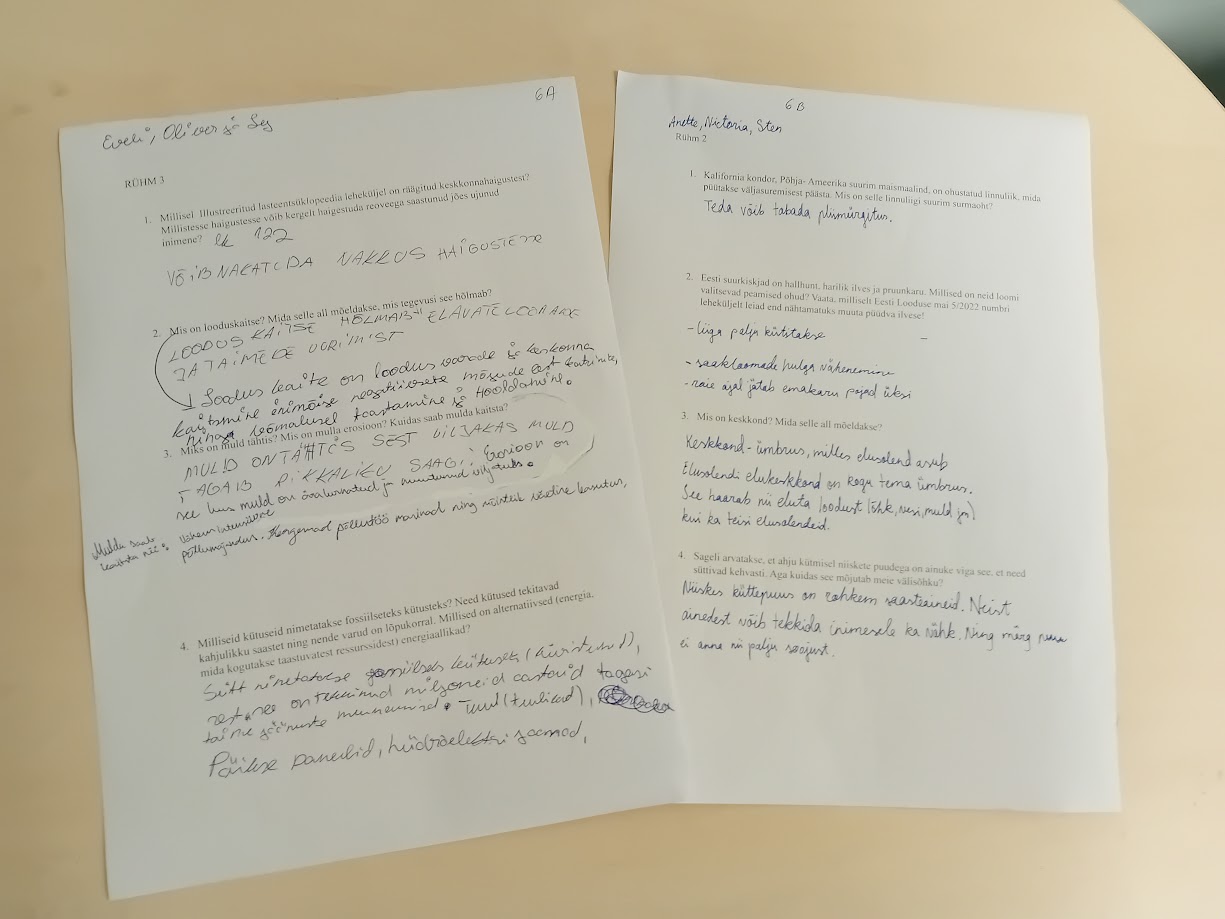 6A
Eveli, Oliver ja
RÜHM 3
1. Millisel Illustreeritud lasteentsüklopeedia leheküljel on räägitud keskkonnahaigustest?
Millistesse haigustesse võib kergelt haigestuda reoveega saastunud jões ujunud
inimene? lk 122
VÕIB NAKATUDA NAKKUS HAIGUSTESSE
2. Mis on looduskaitse? Mida selle all mõeldakse, mis tegevusi see hõlmab?
LOODUS KAITSE HÕLMAB ELAVATE LOOMADE
JA TAIMEDE UURIMIST
Loodus kaite on loodus varade ja keskonna
kaitsmine mõjude eest
ning võimalusel taastamine ja hooldamine.
3. Miks on muld tähtis? Mis on mulla erosioon? Kuidas saab mulda kaitsta?
MULD ON TÄHTIS SEST VILJAKAS MULD
TAGAB RIKKALIKU SAAGI. Erosioon on
see kus muld on ära kurnatud ja muutunud viljatuks.
Mulda saab
kaitsta nii: Vähem intensiivne
põllumajandus. Kergemad põllutöö masinad ning väetise kasutus,
4. Milliseid kütuseid nimetatakse fossiilseteks kütusteks? Need kütused tekitavad
kahjulikku saastet ning nende varud on lõpukorral. Millised on alternatiivsed (energia,
mida kogutakse taastuvatest ressurssidest) energiaallikad?
Sütt nimetatakse fossiilseks kütuseks (kivistunud),
sest see on tekkinud miljoneid aastaid tagasi
taime jäänuste Tuul (tuulikud),
Päikse paneelid, hüdroelektri jaamad,
6B
Anette, Victoria, Sten
Rühm 2
1. Kalifornia kondor, Põhja- Ameerika suurim maismaalind, on ohustatud linnuliik, mida
püütakse väljasuremisest päästa. Mis on selle linnuliigi suurim surmaoht?
Teda võib tabada pliimürgitus.
2. Eesti suurkiskjad on hallhunt, harilik ilves ja pruunkaru. Millised on neid loomi
valitsevad peamised ohud? Vaata, milliselt Eesti Looduse mai 5/2022 numbri
leheküljelt leiad end nähtamatuks muuta püüdva ilvese!
- liiga palju kütitakse
- saakloomade hulga vähenemine
- raie ajal jätab emakaru pojad üksi
3. Mis on keskkond? Mida selle all mõeldakse?
Keskkond - ümbrus, milles elusolend asub
Elusolendi elukeskkond on kogu tema ümbrus.
See haarab nii eluta loodust (õhk, vesi, muld jm)
kui ka teisi elusolendeid.
4. Sageli arvatakse, et ahju kütmisel niiskete puudega on ainuke viga see, et need
süttivad kehvasti. Aga kuidas see mõjutab meie välisõhku?
Niiskes küttepuus on rohkem saasteaineid. Neist
ainedest võib tekkida inimesele ka vähk. Ning märg puu
ei anna nii palju soojust.